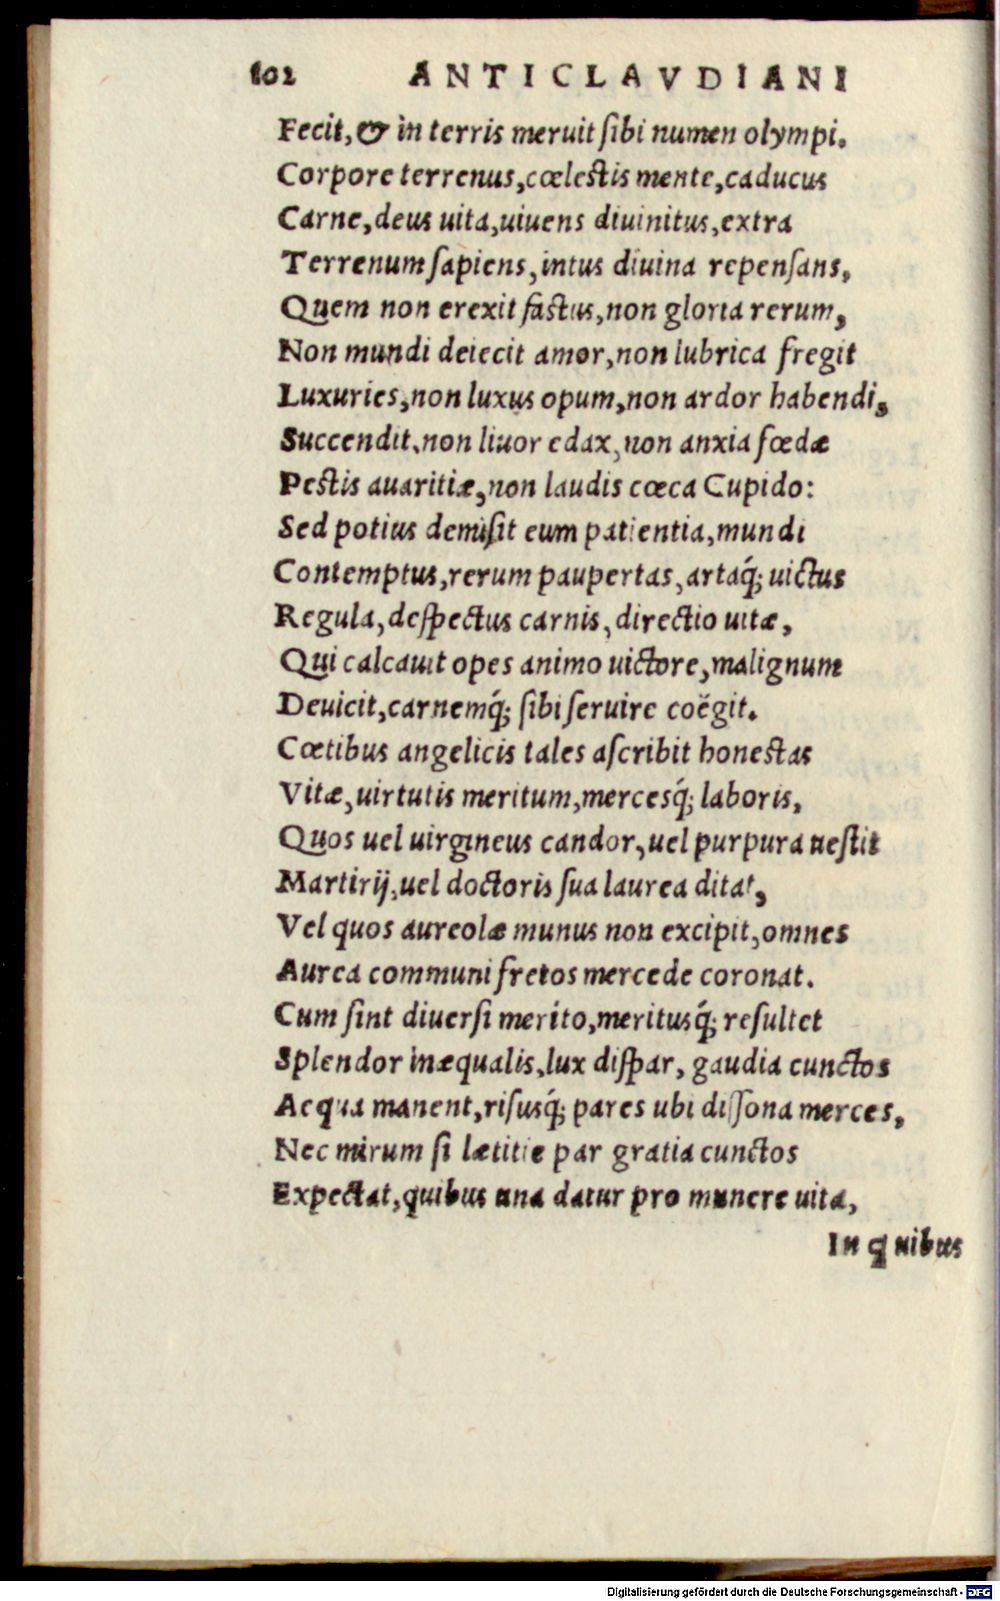 102 ANTICLAVDIANI
Fecit, & in terris meruit ſibi numen olympi.
Corpore terrenus, cœleſtis mente, caducus
Carne, deus uita, uiuens diuinitus, extra
Terrenum ſapiens, intus diuina repenſans,
Quem non erexit faſtus, non gloria rerum,
Non mundi deiecit amor, non lubrica fregit
Luxuries, non luxus opum, non ardor habendi,
Succendit, non liuor edax, non anxia fœdæ
Peſtis auaritiæ, non laudis cœca Cupido:
Sed potius demiſit eum patientia, mundi
Contemptus, rerum paupertas, artaq́; uictus
Regula, deſpectus carnis, directio uitæ,
Qui calcauit opes animo uictore, malignum
Deuicit, carnemq́; ſibi ſeruire coëgit.
Cœtibus angelicis tales aſcribit honeſtas
Vitæ, uirtutis meritum, mercesq́; laboris,
Quos uel uirgineus candor, uel purpura ueſtit
Martirij, uel doctoris ſua laurea ditat,
Vel quos aureolæ munus non excipit, omnes
Aurea communi fretos mercede coronat.
Cum ſint diuerſi merito, meritusq́; reſultet
Splendor inæqualis, lux diſpar, gaudia cunctos
Aequa manent, riſusq́; pares ubi diſſona merces,
Nec mirum ſi lætitie par gratia cunctos
Expectat, quibus una datur pro munere uita,
In quibus
Digitalisierung gefördert durch die Deutsche Forschungsgemeinschaft - DFG